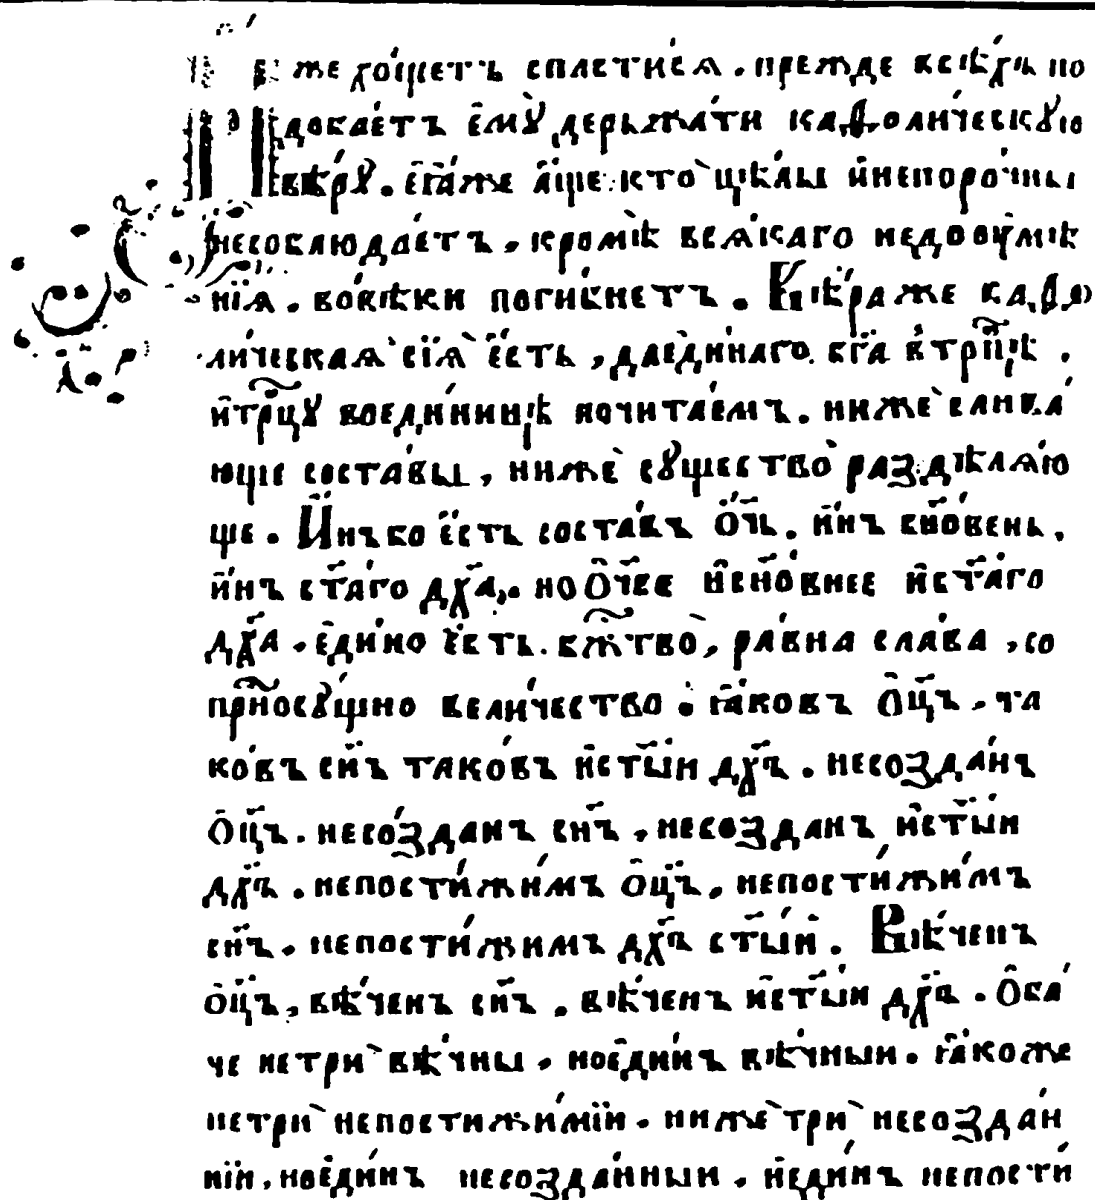 Иже хо́щетъ спасти́сѧ . пре́жде всѣ́хъ по
добае́тъ є҆мꙋ̀ держа́ти каѳоли́ческꙋю
вѣ́рꙋ . є҆ѧ́же а҆́ще кто̀ цѣ́лы и҆непоро́чны
несоблюда́етъ , кромѣ̀ всѧ́каго недоꙋмѣ
нїѧ . во́вѣки поги́бнетъ . Вѣ́ра же каѳо
ли́ческаѧ сїѧ̀ є҆́сть , даєди́наго бг҃а в̾трⷪ҇цѣ .
и҆трⷪ҇цꙋ воеди́ницѣ почита́емъ . нижѐ слива́
юще соста́вы , нижѐ сꙋщество̀ раздѣлѧ́ю
ще . И҆́нъ бо є҆́сть соста́въ ѻ҆́ч҃ь . и҆́нъ сн҃о́вень ,
и҆́нъ ст҃а́го дх҃а , . но ѻ҆́ч҃ее и҆сн҃о́внее и҆ст҃а́го
дх҃а . є҆ди́но є҆́сть . бжⷭ҇тво̀ , ра́вна сла́ва , со
прⷭ҇носꙋ́щно вели́чество . ꙗ҆ко́въ ѻ҆ц҃ъ , та
ко́въ сн҃ъ тако́въ и҆ст҃ы́и дх҃ъ . несо́зда́нъ
ѻ҆ц҃ъ . несо́зданъ сн҃ъ , несозданъ и҆ст҃ы́и
дх҃ъ . непости́жи́мъ ѻ҆ц҃ъ , непости́жи́мъ
сн҃ъ . непости́жимъ дх҃ъ ст҃ы́и . Вѣ́ченъ
ѻ҆ц҃ъ , вѣ́ченъ сн҃ъ . вѣ́ченъ и҆ст҃ы́и дх҃ъ . Ѻ҆ба́
че нетрѝ вѣ́чны , ноє҆ди́нъ вѣ́чныи . ꙗ҆́коже
нетрѝ непостижи́мїи . нижѐ трѝ несозда́н
нїи , ноє҆ди́нъ несозда́нныи . и҆є҆ди́нъ непости́